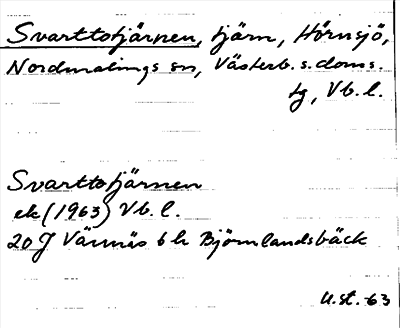 Svarttotjärnen, tjärn, Hörnsjö,
Nordmalings sn, Västerb. s. doms.
tg, Vb. l.
Svarttotjärnen
ek (1963) Vb. l.
20 J Vännäs 6 h Björnlandsbäck
U.st. 63